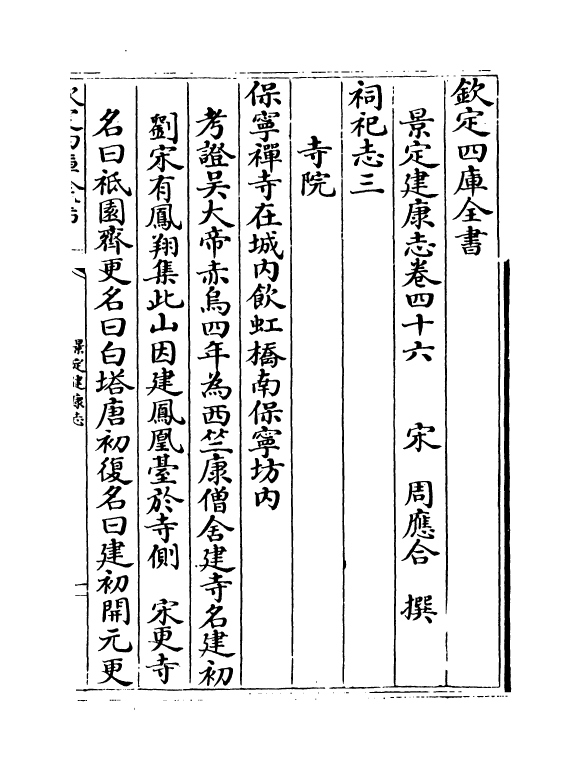 欽定四庫全書
景定建康志卷四十六 宋 周應合 撰
祠祀志三
寺院
保寧禪寺在城内飲虹橋南保寧坊内
考證吳大帝赤烏四年為西竺康僧舍建寺名建初
劉宋有鳳翔集此山因建鳳凰臺於寺側 宋更寺
名曰祗園齊更名曰白塔唐初復名曰建初開元更
景定建康志